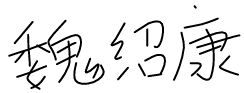 魏绍康